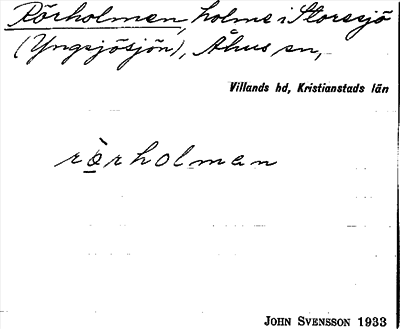 Rörholmen, holme i Storesjö
(Yngsjösjön), Åhus sn,
Villands hd, Kristianstads län
rö̀rholman
JOHN SVENSSON 1933